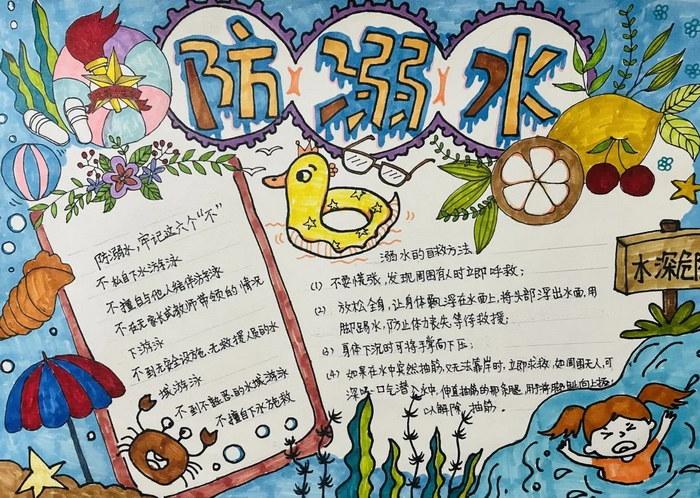 防溺水
防溺水,牢记这六个“不”
不私自下水游泳
不擅自与他人结伴游泳
不在无家长或教师带领的情况
下游泳
不到无安全设施、无救援人员的水
域游泳
不到不熟悉的水域游泳
不擅自下水施救
溺水的自救方法
(1) 不要慌张,发现周围有人时立即呼救;
(2) 放松全身,让身体飘浮在水面上,将头部浮出水面,用
脚踢水,防止体力丧失,等待救援;
(3) 身体下沉时可将手掌向下压;
(4) 如果在水中突然抽筋,又无法靠岸时,立即求救,如周围无人,可
深吸一口气潜入水中,伸直抽筋的那条腿,用手将脚趾向上扳,
以解除抽筋.
水深危